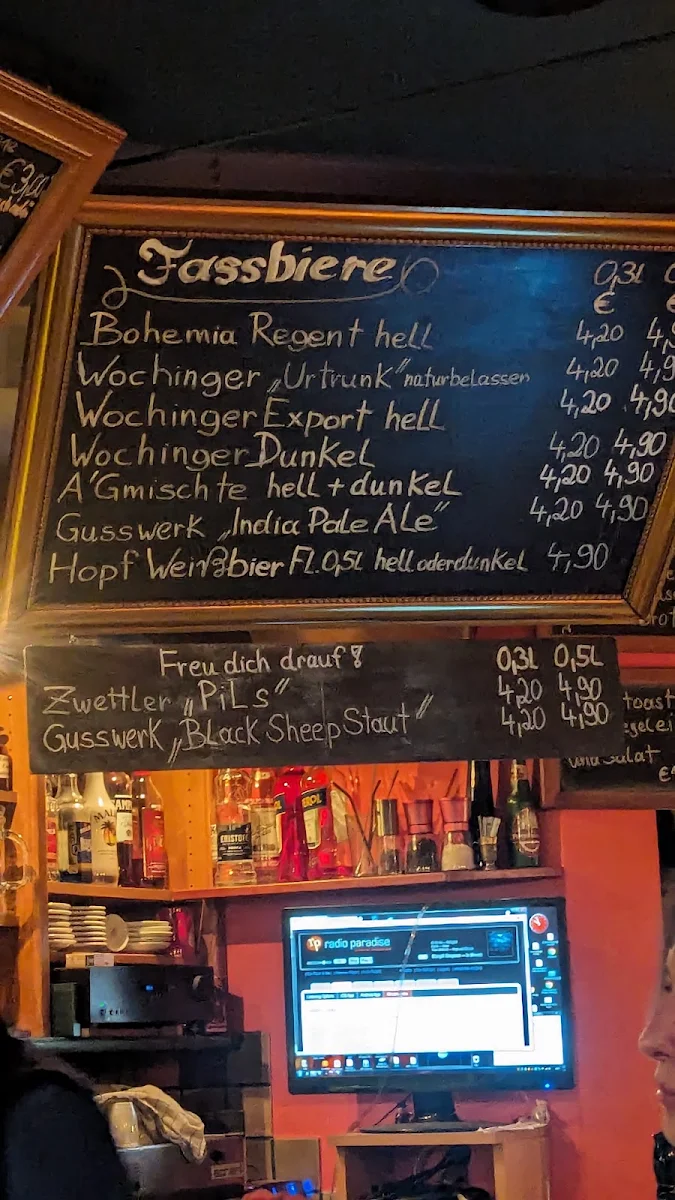 €3,00
Fassbiere 0,3l
€ €
Bohemia Regent hell 4,20
Wochinger „Urtrunk" naturbelassen 4,20
Wochinger Export hell 4,20 4,90
Wochinger Dunkel 4,20 4,90
A'Gmischte hell + dunkel 4,20 4,90
Gusswerk „India Pale Ale" 4,20 4,90
Hopf Weißbier Fl. 0,5l hell oder dunkel 4,90
Freu dich drauf! 0,3l 0,5l
Zwettler „Pils" 4,20 4,90
Gusswerk „Black Sheep Staut" 4,20 4,90
toast
Salat
€
radio paradise